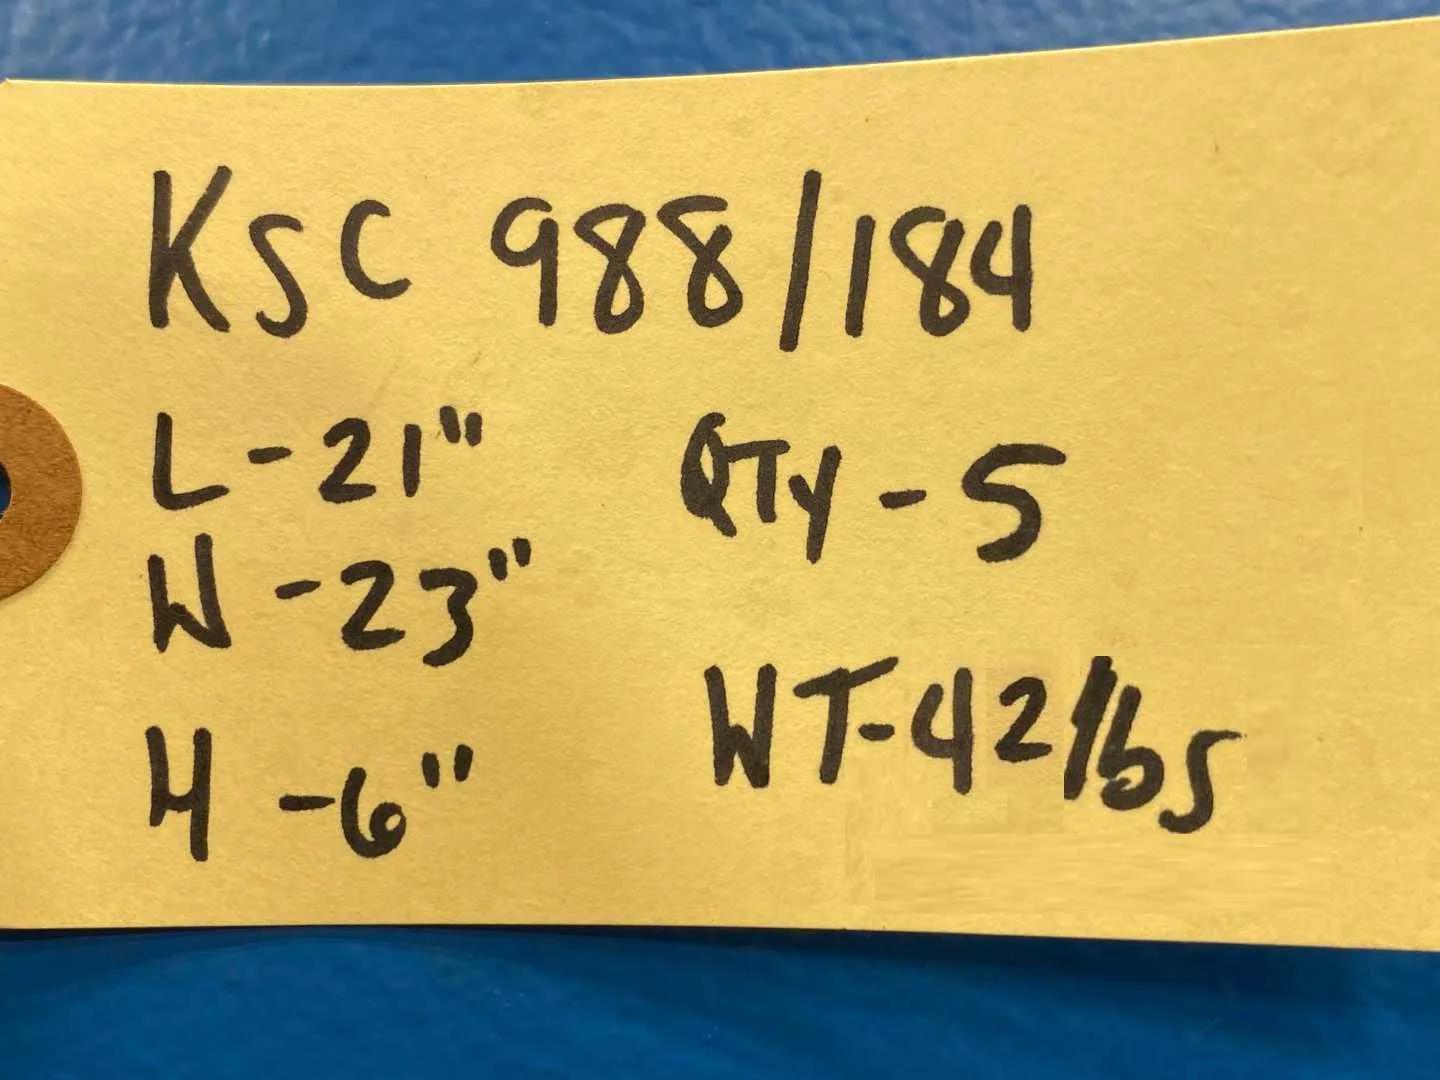 KSC 988/184
L-21" QTY-5
W-23"
H-6" WT-42lbs